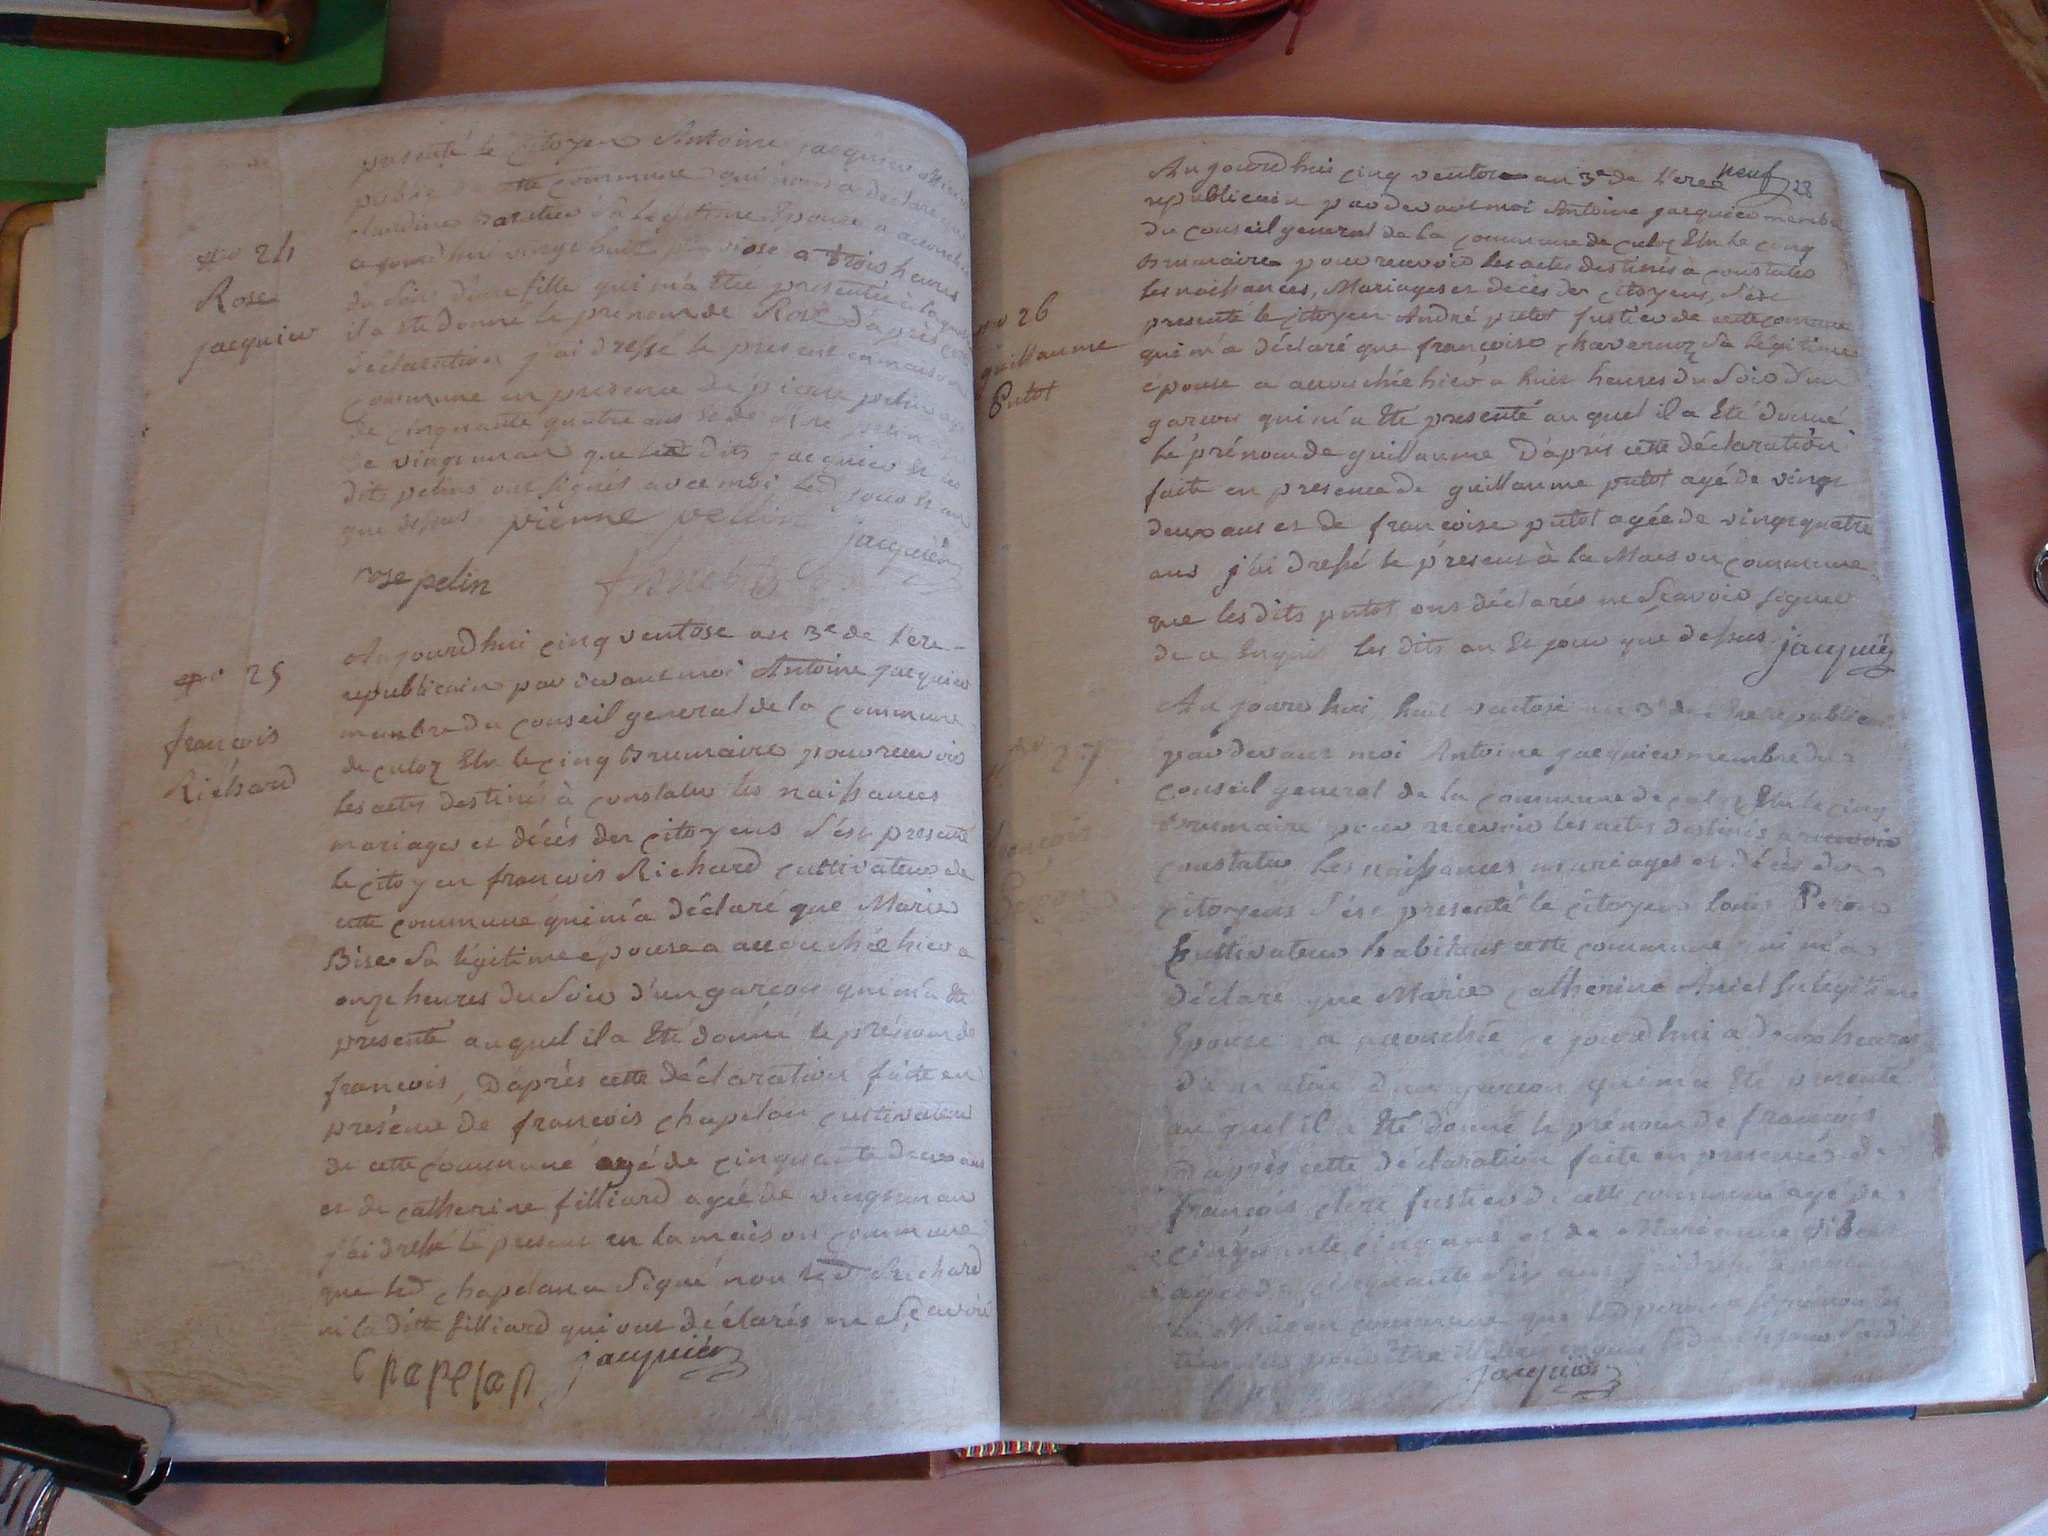 presenté le citoyen Antoine jacquier
public de commune qui nous a declaré que
claudine sa legitime Epouse a accouché
aujourdhui vingt huit pluviose a trois heures
du soir d'une fille qui m'a été presentée à laquelle
il a été donné le prénom de Rose d'après cette
déclaration j'ai dressé le present en maison
commune en presence de pierre pelin agé
de cinquante quatre ans et de Rose pelin agée
de vingt un an que les dits jacquier et les
dits pelins ont signés avec moi led. jour et an
que dessus pierre pellin
jacquier
rose pelin
no 24
Rose
jacquier
Aujourdhui cinq ventose an 3e de l'ere
republicain par devant moi Antoine jacquier
membre du conseil general de la commune
de culoz Elu le cinq Brumaire pour recevoir
les actes destinés à constater les naissances
mariages et décès des citoyens s'est presenté
le citoyen francois Richard cultivateur de
cette commune qui m'a déclaré que Marie
Bise sa légitime epouse a accouchée hier a
onze heures du soir d'un garcon qui m'a été
présenté auquel il a Eté donné le prénom de
francois, D'après cette déclaration faite en
présence de francois chapelan cultivateur
de cette commune agé de cinquante deux ans
et de catherine filliard agée de vingt un an
j'ai dressé le present en la maison commune
que led chapelan a signé non led Richard
ni la ditte filliard qui ont déclarés ne sçavoir
jacquier
no 25
francois
Richard
neuf 28
Aujourdhui cinq ventose an 3e de l'ere
republicain par devant moi Antoine jacquier membre
du conseil general de la commune de culoz Elu le cinq
Brumaire pour recevoir les actes destinés à constater
les naissances, Mariages et décès des citoyens, s'est
presenté le citoyen André putot fustier de cette commune
qui m'a déclaré que françoise chavernoz sa legitime
épouse a accouchée hier a huit heures du soir d'un
garcon qui m'a été presenté auquel il a Eté donné
le prénom de guillaume D'après cette déclaration
faite en presence de guillaume putot agé de vingt
deux ans et de francoise putot agée de vingt quatre
ans j'ai dressé le présent à la Maison commune
que les dits putot ont déclarés ne sçavoir signer
de ce Enquis les dits an et jour que dessus jacquier
no 26
guillaume
Putot
Aujourdhui huit ventose an 3e de l'Ere republicain
par devant moi Antoine jacquier membre du
conseil general de la commune de culoz Elu le cinq
Brumaire pour recevoir les actes destinés a recevoir
constater les naissances mariages et décès des
citoyens s'est presenté le citoyen louis Peron
cultivateur habitant cette commune qui m'a
déclaré que Marie catherine Aniel sa legitime
Epouse a accouchée ce jourdhui a deux heures
du matin d'un garcon qui m'a été presenté
auquel il a Eté donné le prénom de francois
D'après cette déclaration faite en presence de
françois clerc fustier de cette commune agé de
cinquante cinq ans et de Marianne
agée de cinquante six ans j'ai dressé
la Maison commune que led peron a signé non les
jacquier
no 27
françois
Peron